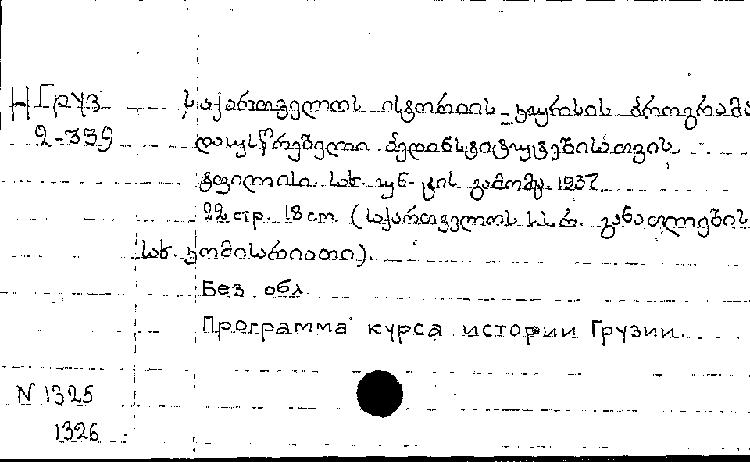 НГруз საქართველოს ისტორიის კურსის პროგრამა
2-339 დაუსწრებელი პედინსტიტუტებისათვის
ტფილისი. სახ. უნ-ტის გამომც. 1937
22 стр. 18 cm (საქართველოს ს.ს.რ. განათლების
სახ. კომისარიათი).
Без обл.
Программа курса истории Грузии.
N 1325
1326